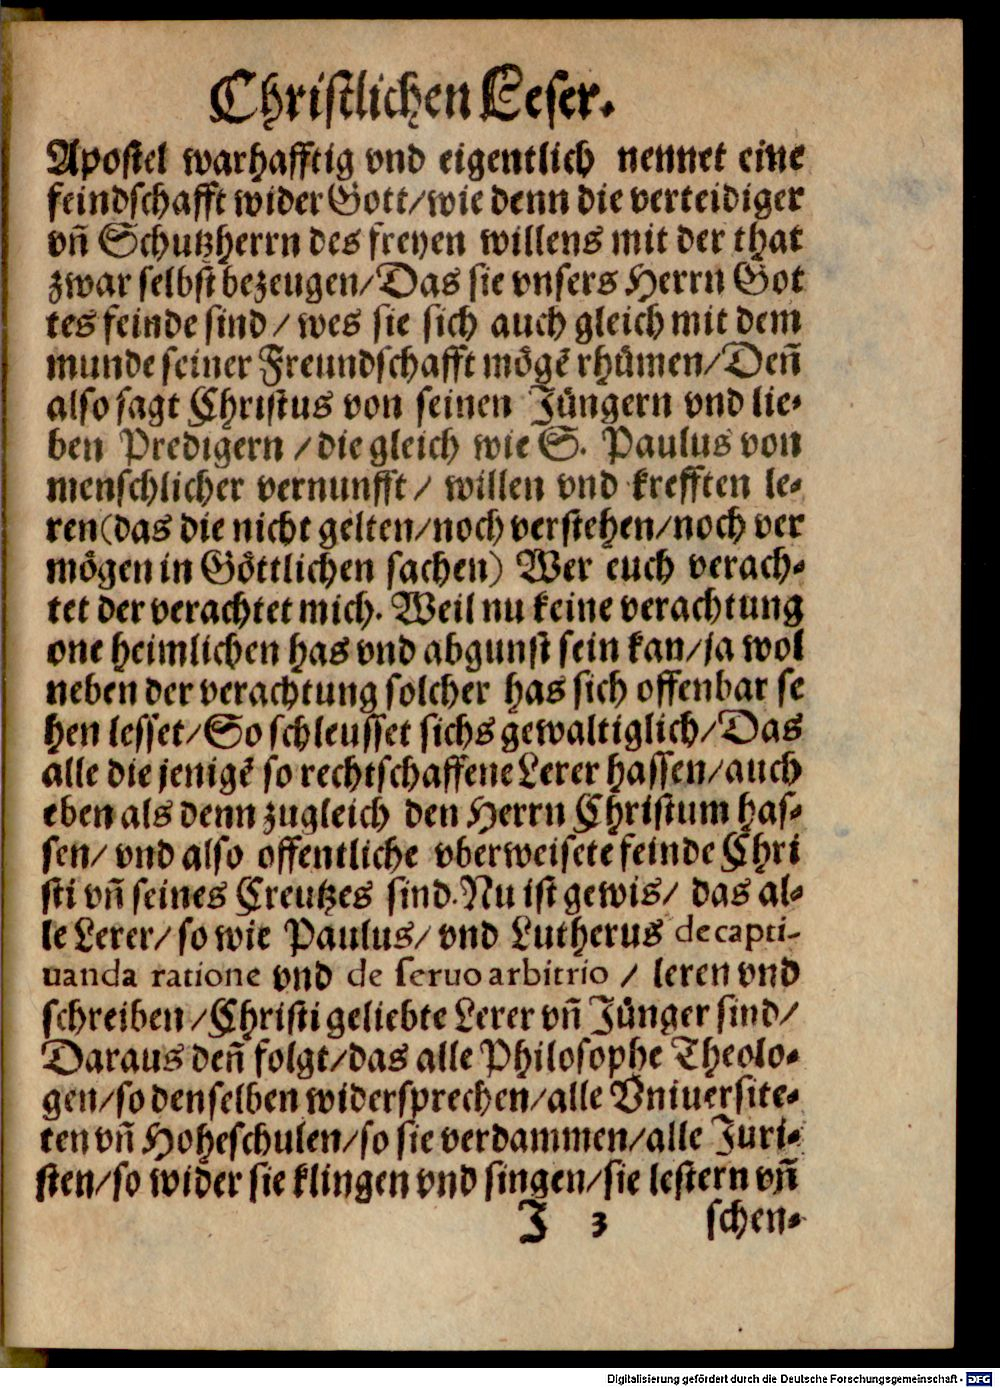 Christlichen Leser.
Apostel warhafftig vnd eigentlich nennet eine
feindschafft wider Gott/wie denn die verteidiger
vn̄ Schutzherrn des freyen willens mit der that
zwar selbst bezeugen/Das sie vnsers Herrn Got
tes feinde sind/wes sie sich auch gleich mit dem
munde seiner Freundschafft mögē rhümen/Den̄
also sagt Christus von seinen Jüngern vnd lie-
ben Predigern/die gleich wie S. Paulus von
menschlicher vernunfft/willen vnd krefften le-
ren(das die nicht gelten/noch verstehen/noch ver
mögen in Göttlichen sachen) Wer euch verach-
tet der verachtet mich. Weil nu keine verachtung
one heimlichen has vnd abgunst sein kan/ja wol
neben der verachtung solcher has sich offenbar se
hen lesset/So schleusset sichs gewaltiglich/Das
alle die jenigē so rechtschaffene Lerer hassen/auch
eben als denn zugleich den Herrn Christum has-
sen/vnd also offentliche vberweisete feinde Chri
sti vn̄ seines Creutzes sind. Nu ist gewis/das al-
le Lerer/so wie Paulus/vnd Lutherus de capti-
uanda ratione vnd de seruo arbitrio/leren vnd
schreiben/Christi geliebte Lerer vn̄ Jünger sind/
Daraus den̄ folgt/das alle Philosophe Theolo-
gen/so denselben widersprechen/alle Vniuersite-
ten vn̄ Hoheschulen/so sie verdammen/alle Juri-
sten/so wider sie klingen vnd singen/sie lestern vn̄
J 3 schen-
Digitalisierung gefördert durch die Deutsche Forschungsgemeinschaft - DFG